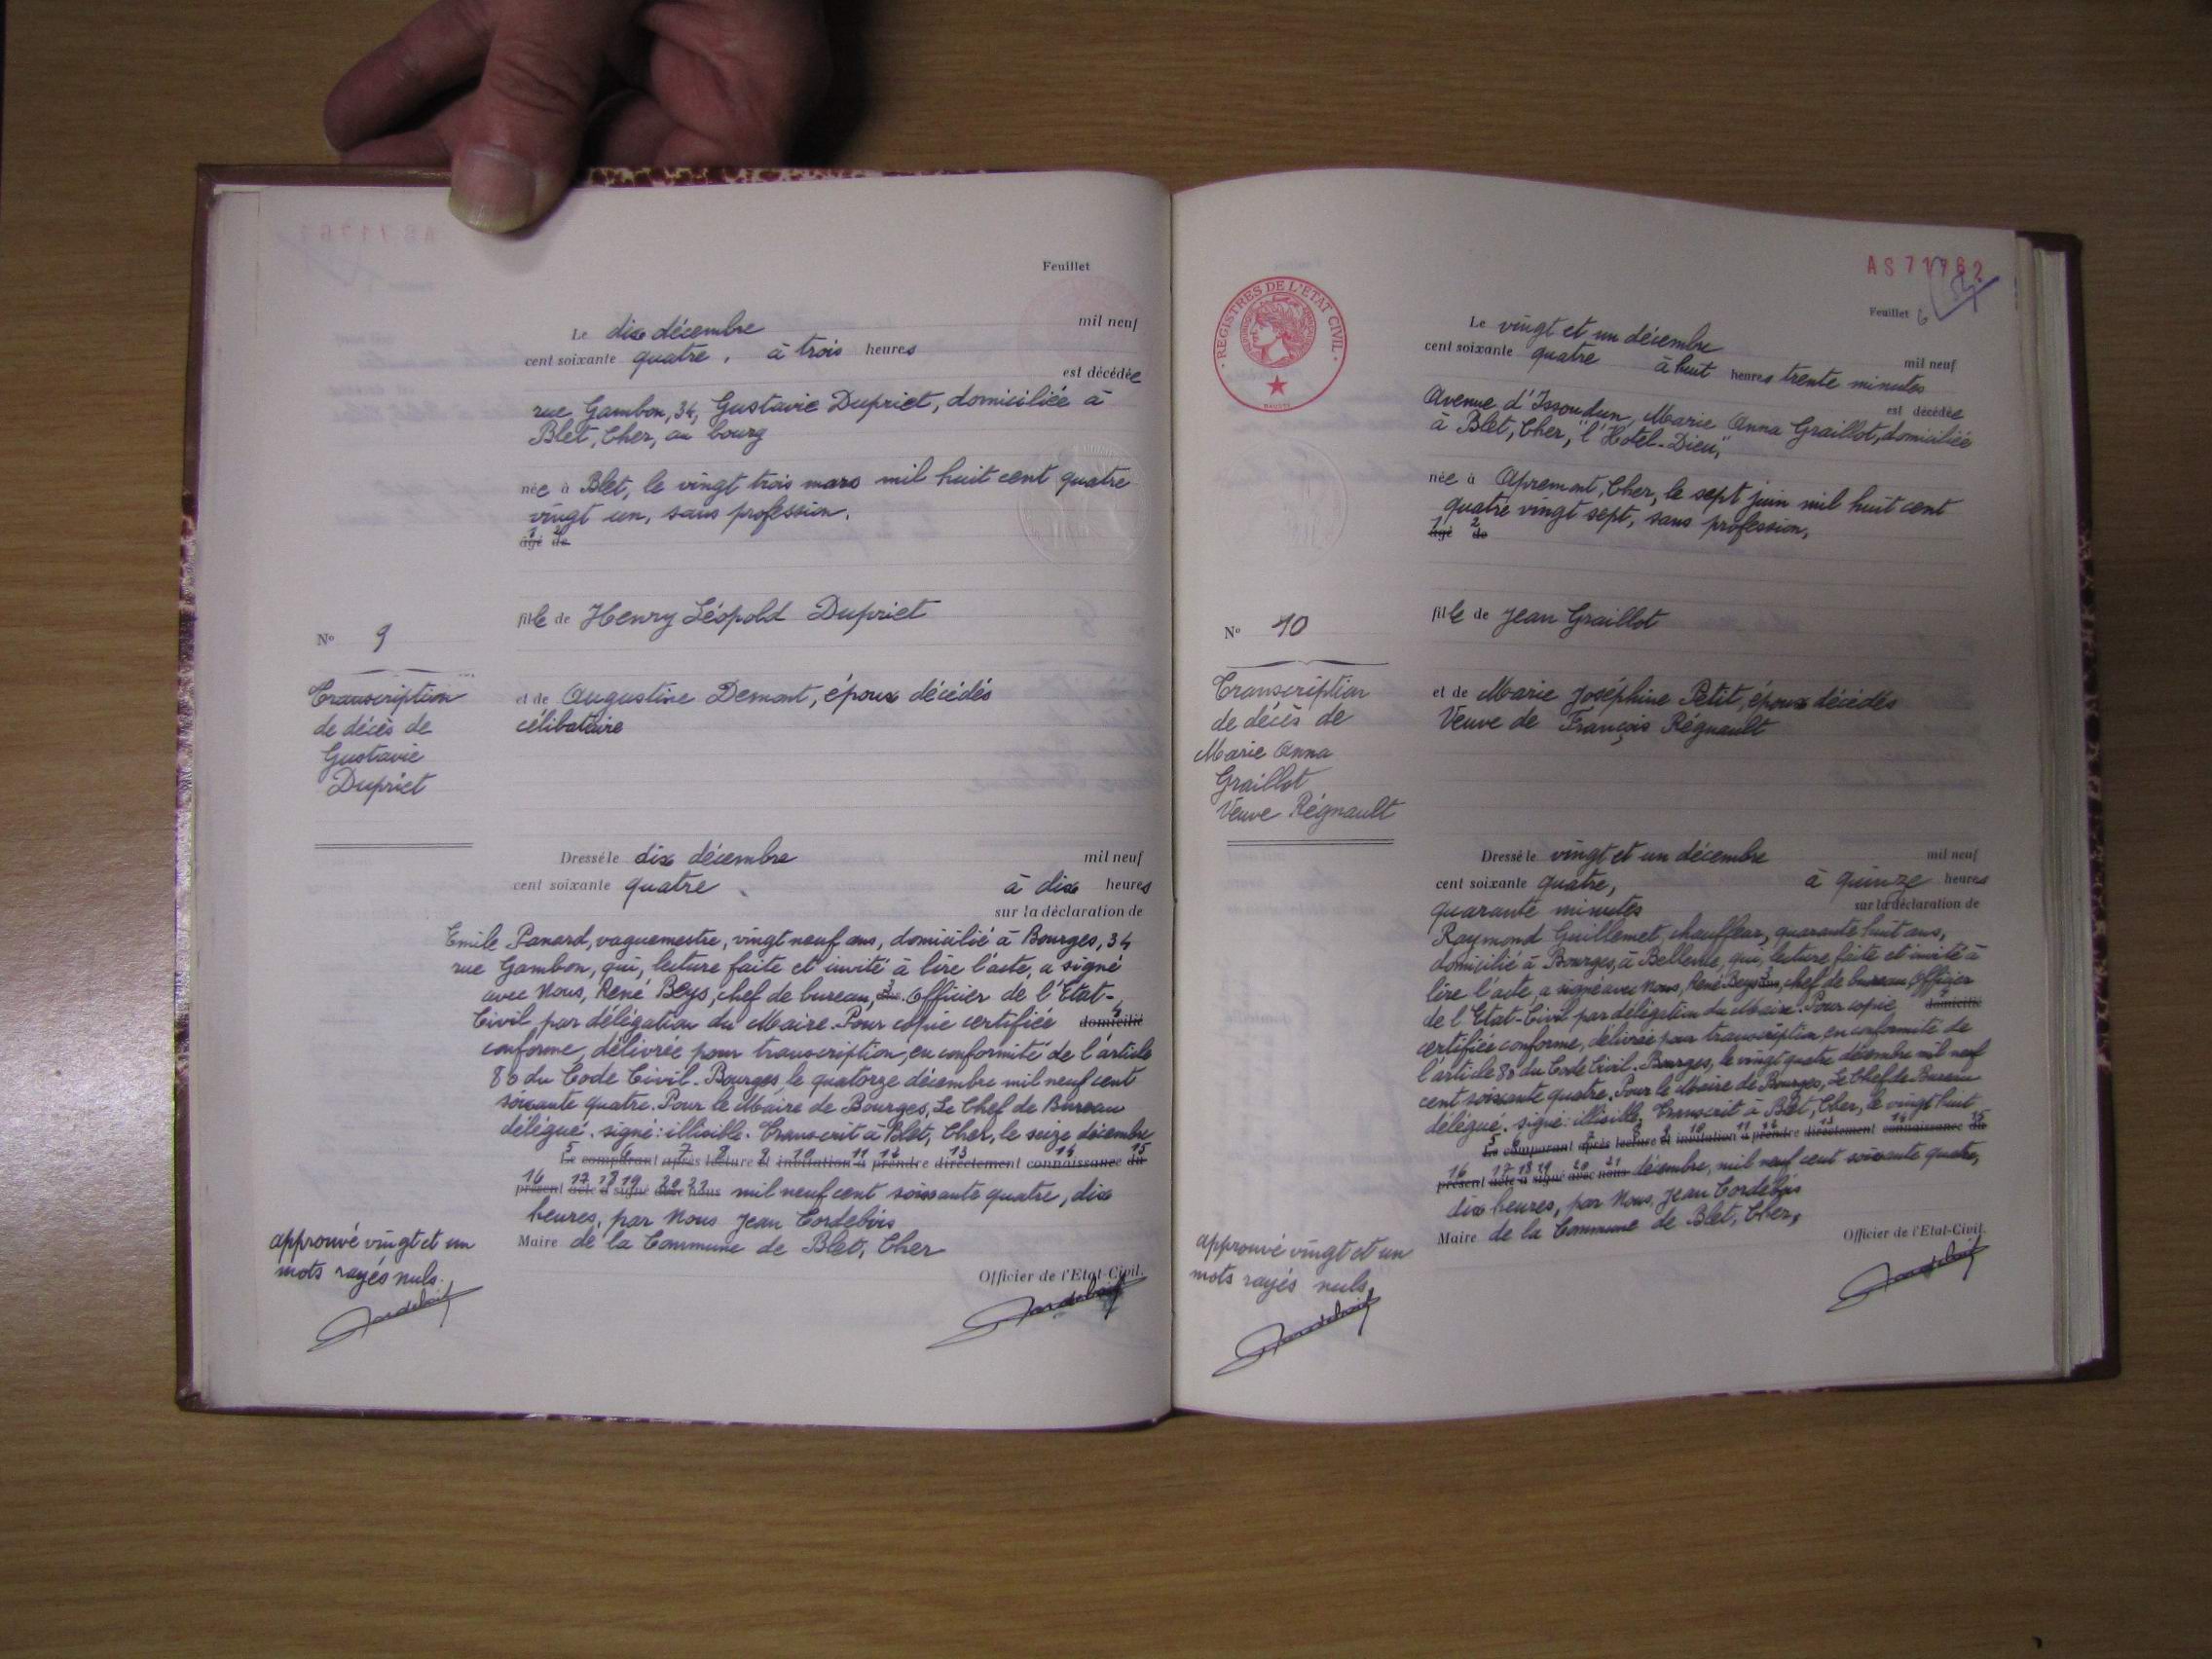 Feuillet
Le dix décembre mil neuf
cent soixante quatre, à trois heures
est décédée
rue Gambon, 34, Gustavie Dupriet, domiciliée à
Blet, Cher, au bourg
née à Blet, le vingt trois mars mil huit cent quatre
vingt un, sans profession,
âgé de
fille de Henry Léopold Dupriet
N° 9
Transcription
de décès de
Gustavie
Dupriet
et de Augustine Demont, époux décédés
célibataire
Dressé le dix décembre mil neuf
cent soixante quatre à dix heures
sur la déclaration de
Emile Panard, vaguemestre, vingt neuf ans, domicilié à Bourges, 34
rue Gambon, qui, lecture faite et invité à lire l'acte, a signé
avec Nous, René Beys, chef de bureau, 3 Officier de l'Etat-
Civil par délégation du Maire. Pour copie certifiée 4 domicilié
conforme, délivrée pour transcription, en conformité de l'article
80 du Code Civil. Bourges, le quatorze décembre mil neuf cent
soixante quatre. Pour le Maire de Bourges, Le Chef de Bureau
délégué. signé: illisible. Transcrit à Blet, Cher, le seize décembre
5 6 7 8 9 10 11 12 13 14 15
Le comparant après lecture et invitation à prendre directement connaissance du
16 17 18 19 20 21
présent acte a signé avec nous mil neuf cent soixante quatre, dix
heures, par Nous Jean Cordebois
Maire de la Commune de Blet, Cher
Officier de l'Etat-Civil.
approuvé vingt et un
mots rayés nuls.
AS 71762
Feuillet 6
REGISTRES DE L'ETAT CIVIL
Le vingt et un décembre mil neuf
cent soixante quatre à huit heures trente minutes
est décédée
Avenue d'Issoudun, Marie Anna Graillot, domiciliée
à Blet, Cher, "l'Hotel-Dieu",
née à Apremont, Cher, le sept juin mil huit cent
quatre vingt sept, sans profession,
1 2
âgé de
fille de Jean Graillot
N° 10
Transcription
de décès de
Marie Anna
Graillot
Veuve Régnault
et de Marie Joséphine Petit, époux décédés
Veuve de François Régnault
Dressé le vingt et un décembre mil neuf
cent soixante quatre, à quinze heures
quarante minutes sur la déclaration de
Raymond Guillemet, chauffeur, quarante huit ans,
domicilié à Bourges, à Bellevue, qui, lecture faite et invité à
lire l'acte, a signé avec Nous, René Beys 3, chef de bureau Officier
de l'Etat-Civil par délégation du Maire. Pour copie domicilié
certifiée conforme, délivrée pour transcription, en conformité de
l'article 80 du Code Civil. Bourges, le vingt quatre décembre mil neuf
cent soixante quatre. Pour le Maire de Bourges, Le Chef de Bureau
délégué. signé: illisible, Transcrit à Blet, Cher, le vingt huit
5 6 7 8 9 10 11 12 13 14 15
Le comparant après lecture et invitation à prendre directement connaissance du
16 17 18 19 20 21
présent acte a signé avec nous décembre, mil neuf cent soixante quatre,
dix heures, par Nous, Jean Cordebois
Maire de la Commune de Blet, Cher,
Officier de l'Etat-Civil.
approuvé vingt et un
mots rayés nuls,